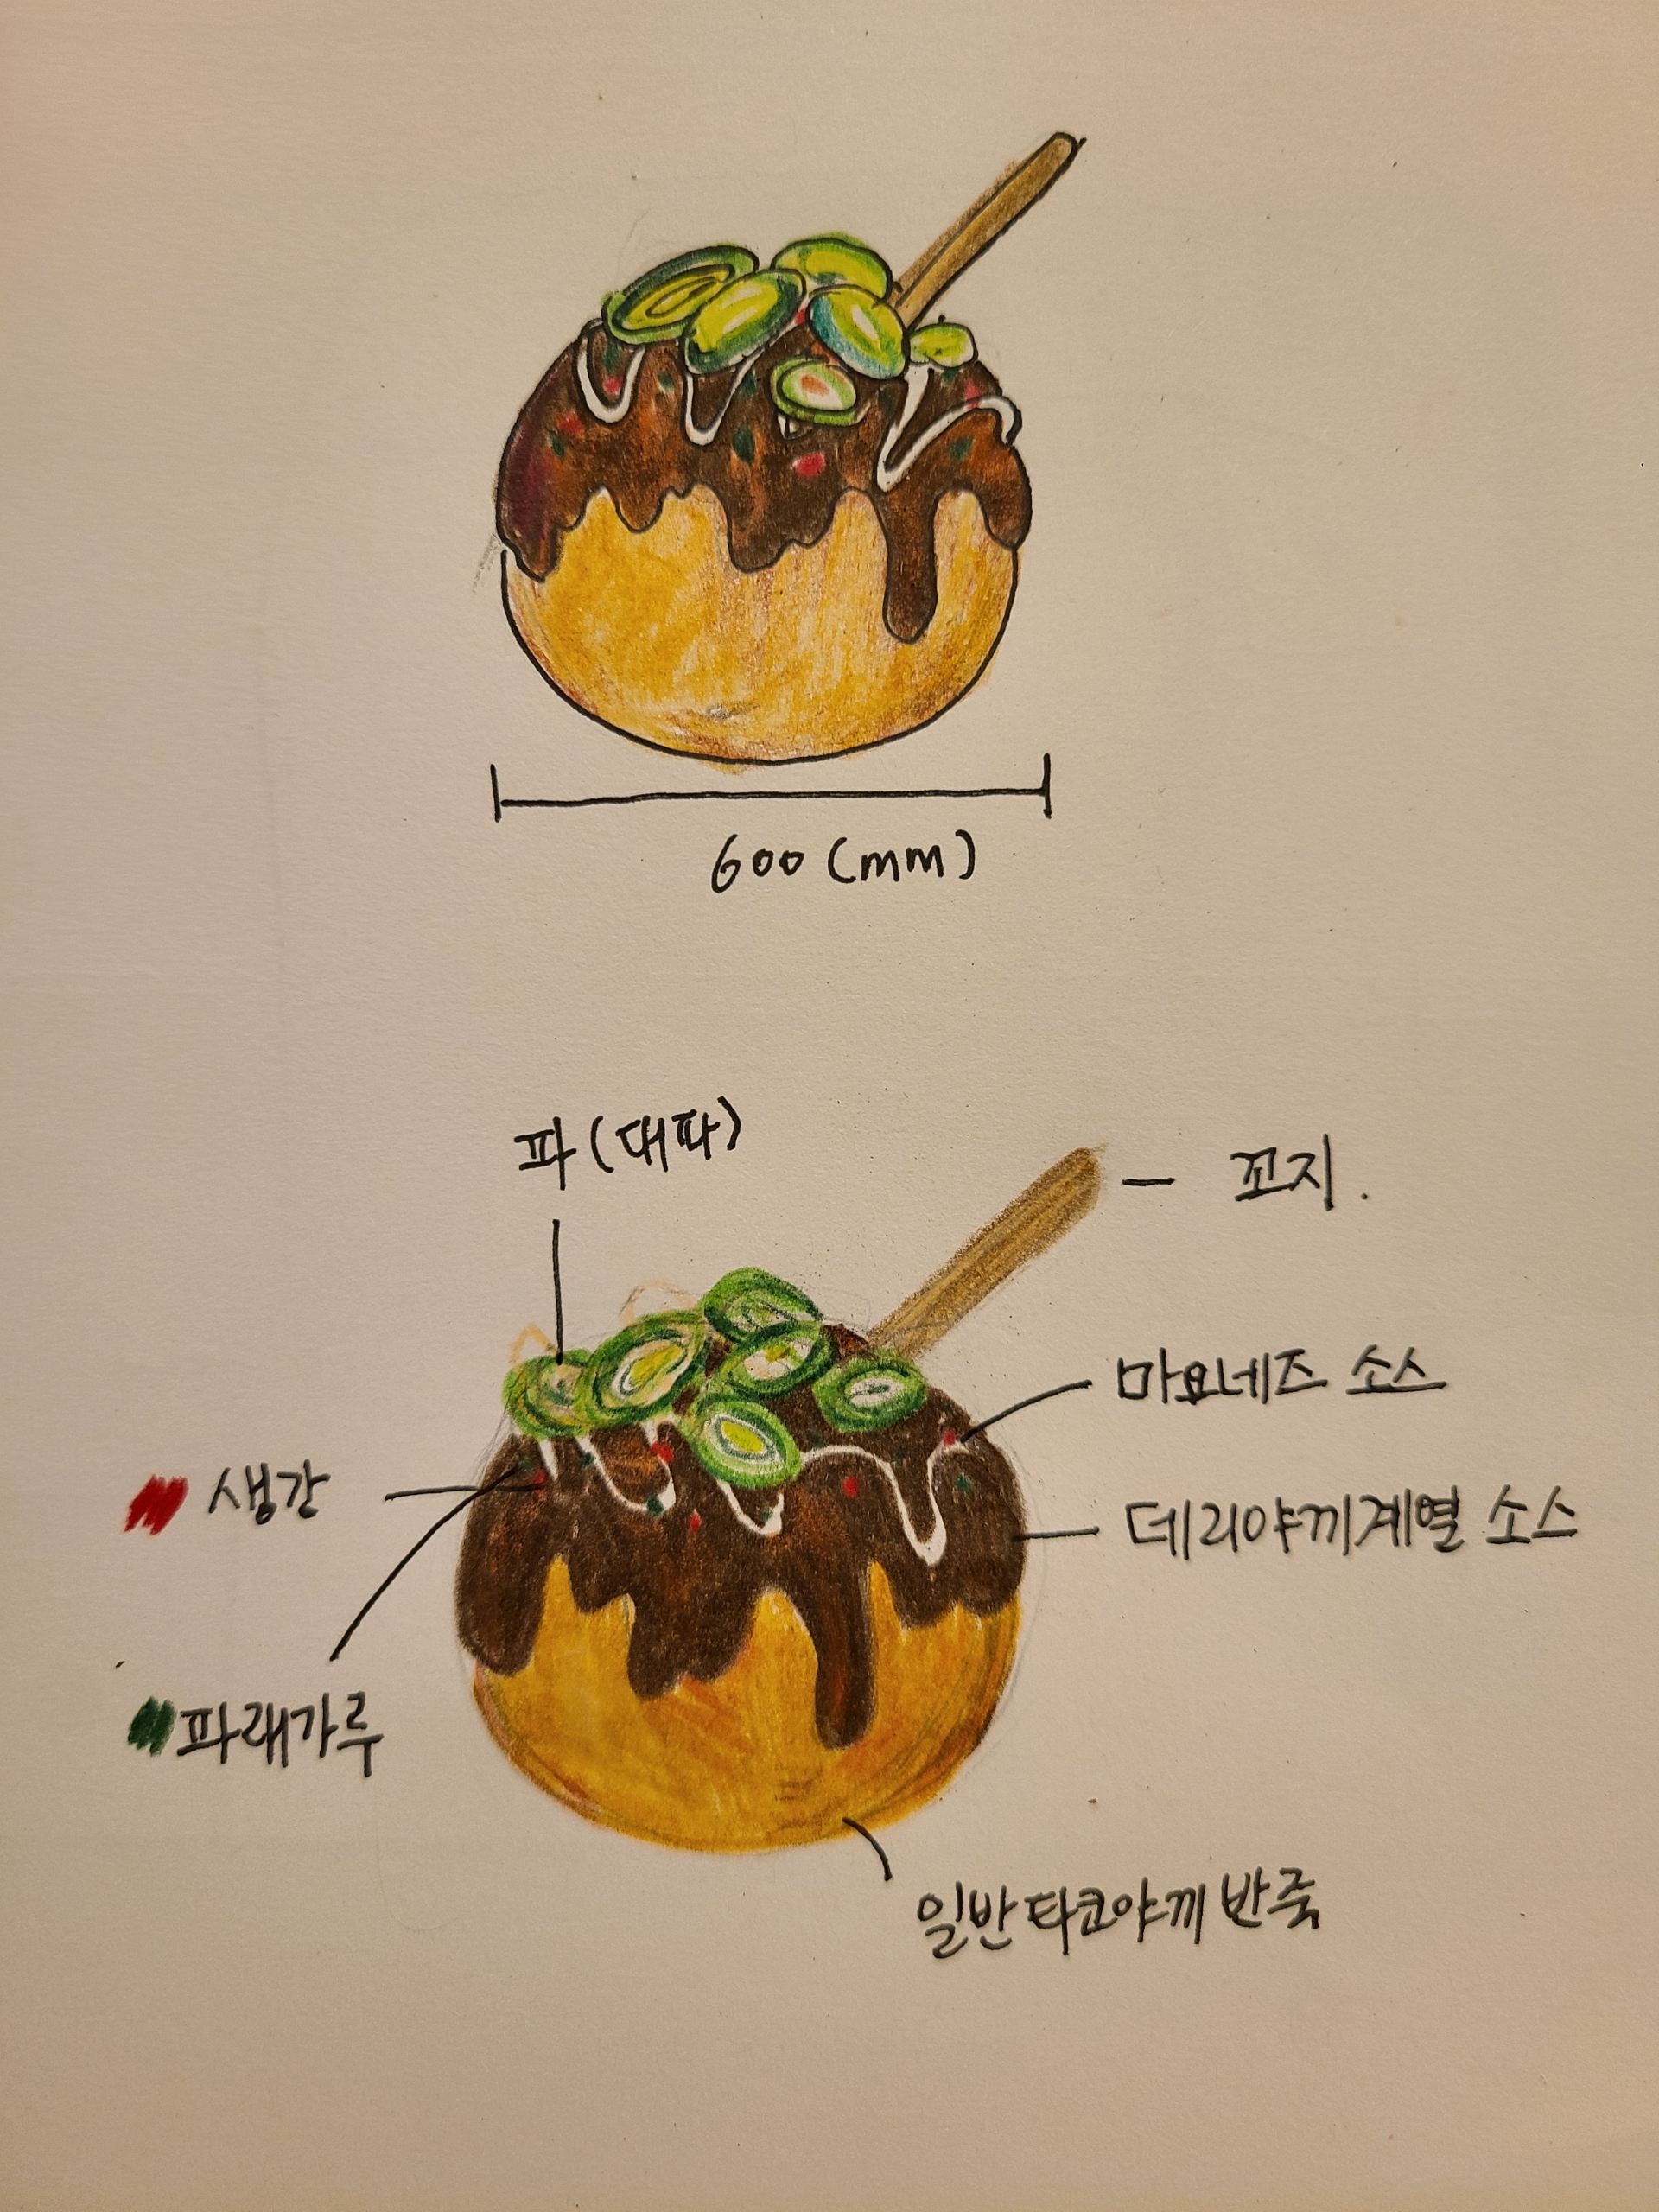 600 (mm)
파 (대파)
꼬지.
마요네즈 소스
생강
데리야끼계열 소스
파래가루
일반 타코야끼 반죽